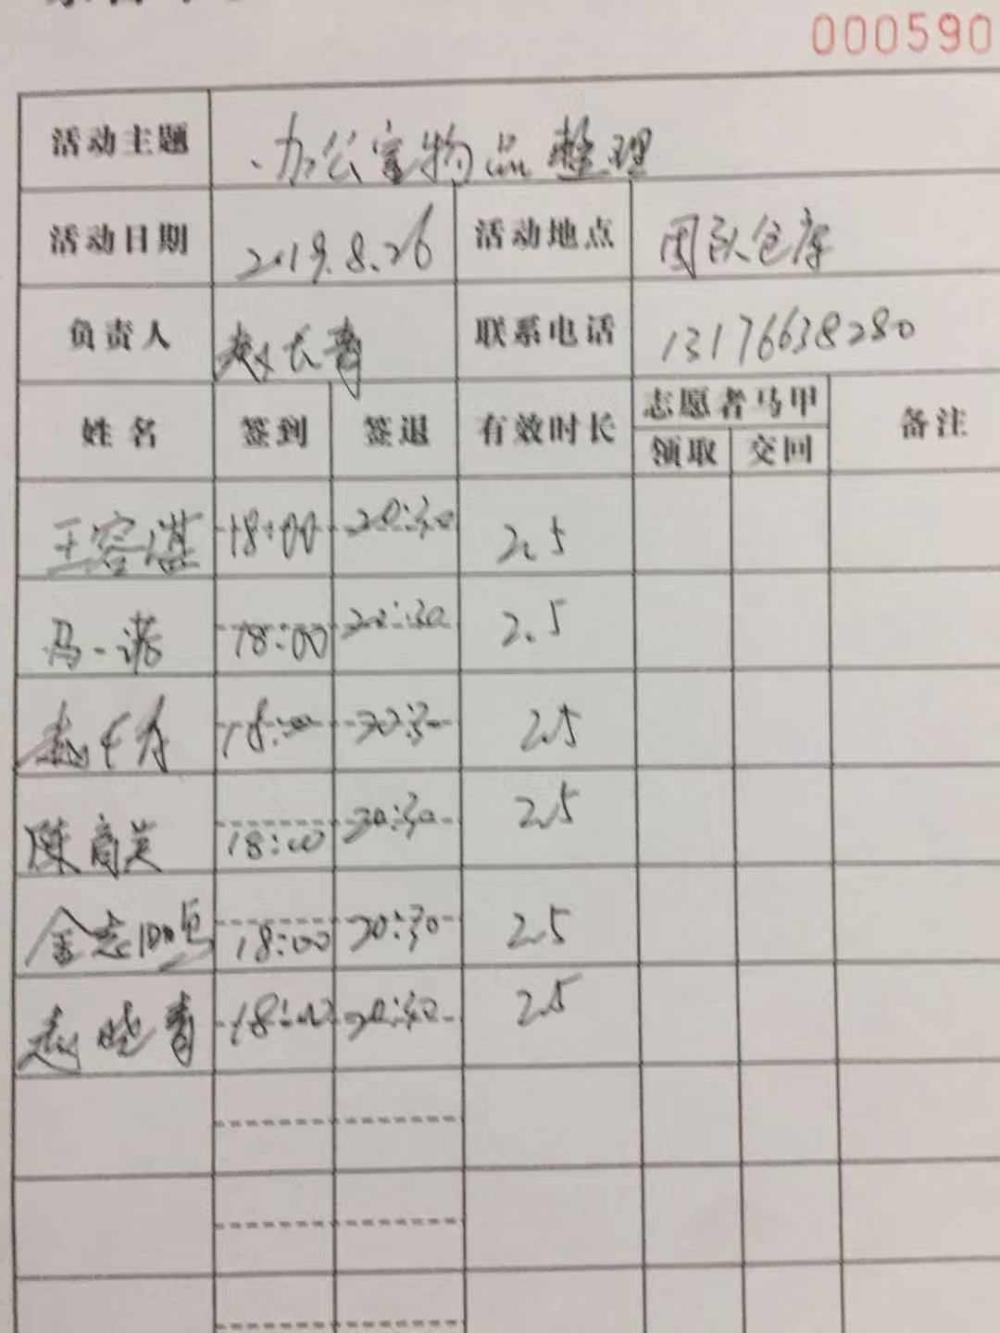 000590
活动主题 办公室物品整理
活动日期 2019.8.26 活动地点 团队仓库
负责人 赵长青 联系电话 13176638280
姓名 签到 签退 有效时长 志愿者马甲 备注
领取 交回
王容湛 18:00 20:30 2.5
马一诺 18:00 20:30 2.5
赵 18:00 20:30 2.5
陈 18:00 20:30 2.5
金志 18:00 20:30 2.5
赵晓青 18:00 20:30 2.5